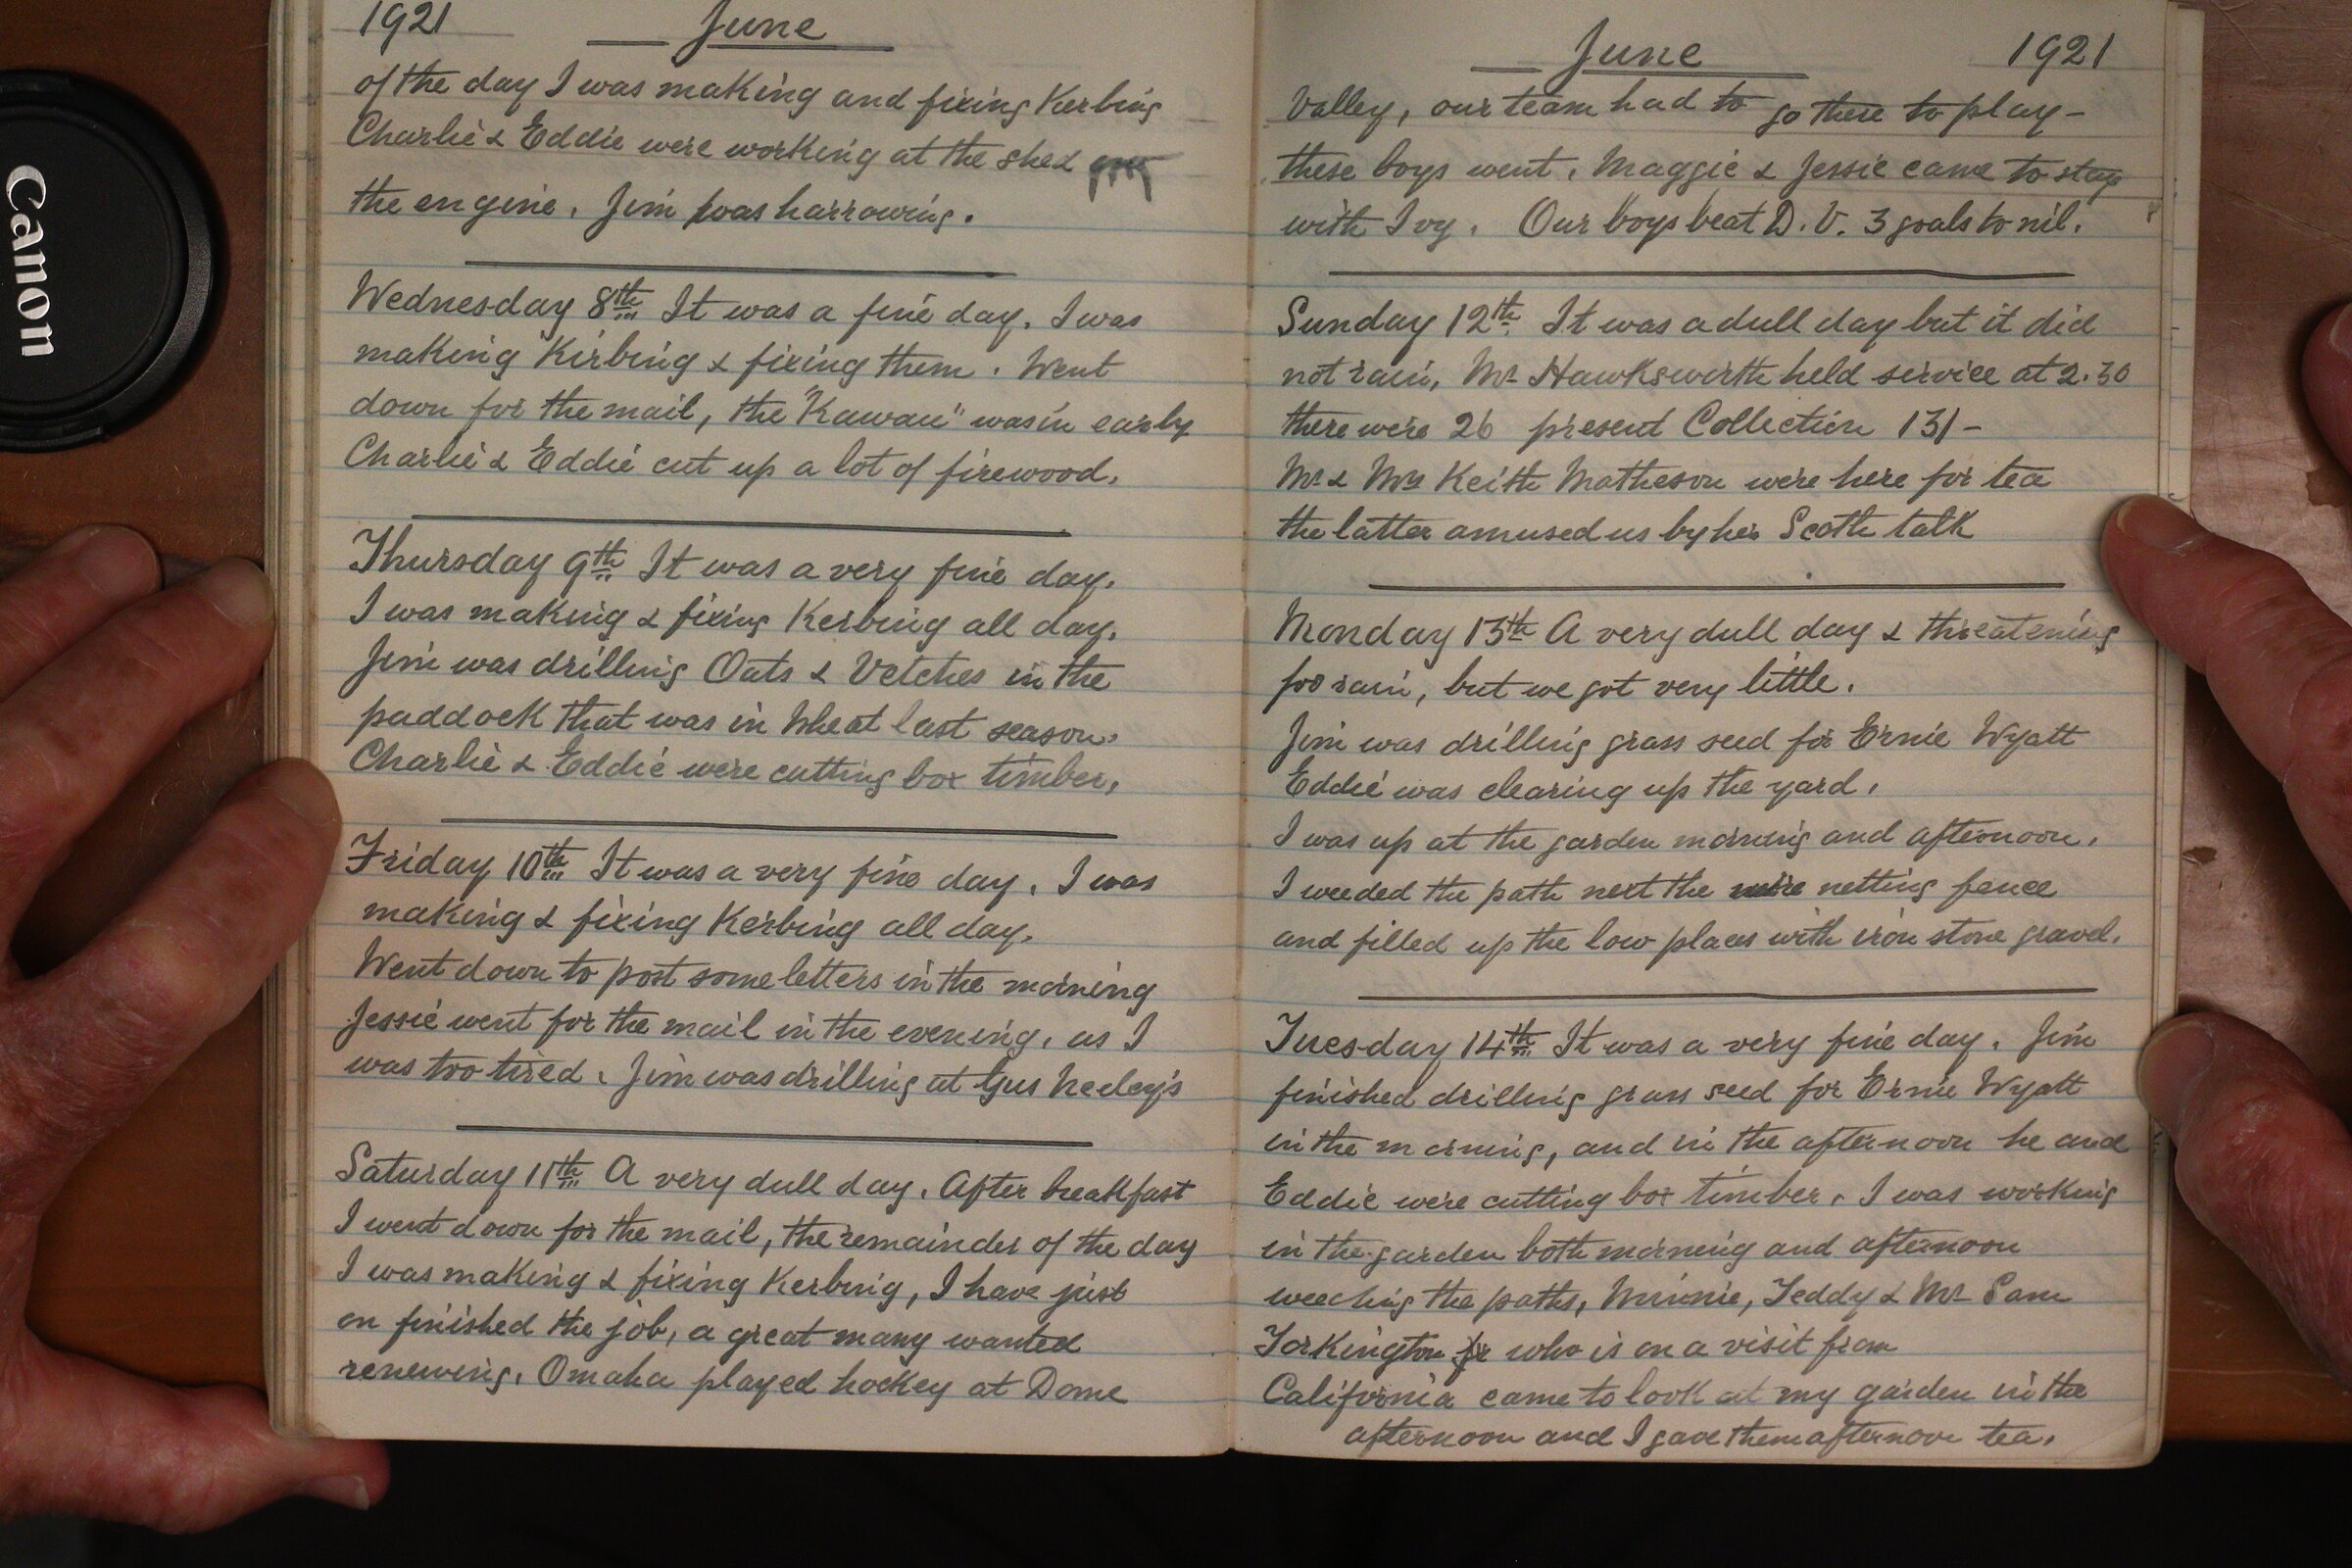 Canon
1921 June
of the day I was making and fixing Kerbing
Charlie & Eddie were working at the shed for
the engine. Jim was harrowing.
Wednesday 8th It was a fine day. I was
making Kirbing & fixing them. Went
down for the mail, the "Kawau" was in early
Charlie & Eddie cut up a lot of firewood.
Thursday 9th It was a very fine day.
I was making & fixing Kerbing all day.
Jim was drilling Oats & Vetches in the
paddock that was in Wheat last season.
Charlie & Eddie were cutting box timber.
Friday 10th It was a very fine day. I was
making & fixing Kerbing all day.
Went down to post some letters in the morning
Jessie went for the mail in the evening, as I
was too tired. Jim was drilling at Gus Neeley's
Saturday 11th A very dull day. After breakfast
I went down for the mail, the remainder of the day
I was making & fixing Kerbing, I have just
on finished the job, a great many wanted
renewing. Omaha played hockey at Dome
June 1921
Valley, our team had to go there to play-
these boys went. Maggie & Jessie came to stay
with Ivy. Our boys beat D.V. 3 goals to nil.
Sunday 12th It was a dull day but it did
not rain, Mr Hawksworth held service at 2.30
there were 26 present Collection 13/-
Mr & Mrs Keith Matheson were here for tea
the latter amused us by her Scoth talk
Monday 13th A very dull day & threatening
for rain, but we got very little.
Jim was drilling grass seed for Ernie Wyatt
Eddie was clearing up the yard.
I was up at the garden morning and afternoon.
I weeded the path next the wire netting fence
and filled up the low places with iron stone gravel.
Tuesday 14th It was a very fine day. Jim
finished drilling grass seed for Ernie Wyatt
in the morning, and in the afternoon he and
Eddie were cutting box timber. I was working
in the garden both morning and afternoon
weeding the paths, Minnie, Teddy & Mr Sam
Torkington who is on a visit from
California came to look at my garden in the
afternoon and I gave them afternoon tea.